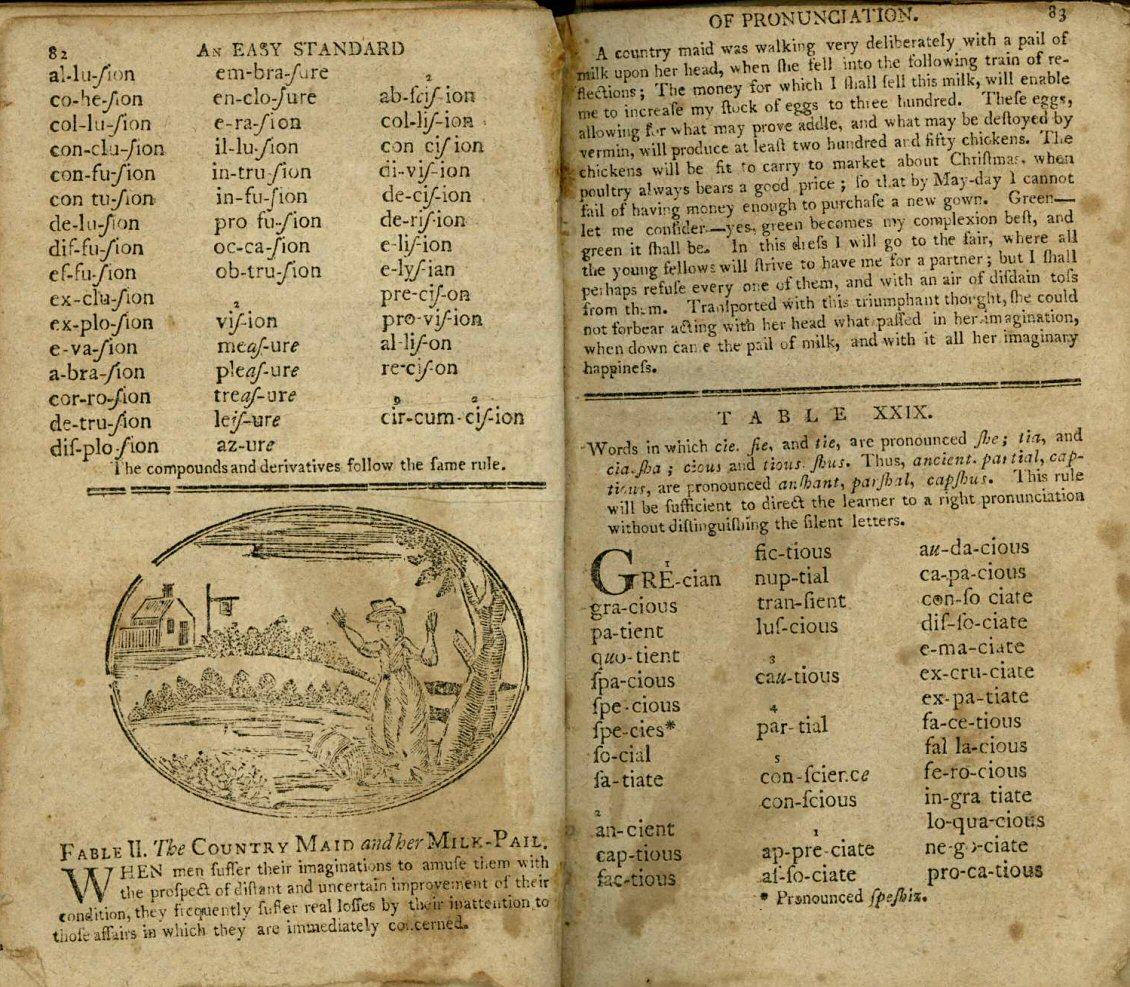 82 AN EASY STANDARD
al-lu-ſion
co-he-ſion
col-lu-ſion
con-clu-ſion
con-fu-ſion
con tu-ſion
de-lu-ſion
diſ-fu-ſion
ef-fu-ſion
ex-clu-ſion
ex-plo-ſion
e-va-ſion
a-bra-ſion
cor-ro-ſion
de-tru-ſion
diſ-plo-ſion
em-bra-ſure
en-clo-ſure
e-ra-ſion
il-lu-ſion
in-tru-ſion
in-fu-ſion
pro fu-ſion
oc-ca-ſion
ob-tru-ſion
2
viſ-ion
meaſ-ure
pleaſ-ure
treaſ-ure
leiſ-ure
az-ure
2
ab-ſciſ-ion
col-liſ-ion
con ciſ ion
di-viſ-ion
de-ciſ-ion
de-riſ-ion
e-liſ-ion
e-lyſ-ian
pre-ciſ-on
pro-viſ-ion
al-liſ-on
re-ciſ-on
2
cir-cum-ciſ-ion
The compounds and derivatives follow the ſame rule.
FABLE II. The COUNTRY MAID and her MILK-PAIL.
WHEN men ſuffer their imaginations to amuſe them with
the proſpect of diſtant and uncertain improvement of their
condition, they frequently ſuffer real loſſes by their inattention to
thoſe affairs in which they are immediately concerned.
OF PRONUNCIATION. 83
A country maid was walking very deliberately with a pail of
milk upon her head, when ſhe fell into the following train of re-
flections; The money for which I ſhall ſell this milk, will enable
me to increaſe my ſtock of eggs to three hundred. Theſe eggs,
allowing for what may prove addle, and what may be deſtoyed by
vermin, will produce at leaſt two hundred and fifty chickens. The
chickens will be fit to carry to market about Chriſtmas, when
poultry always bears a good price; ſo that by May-day I cannot
fail of having money enough to purchaſe a new gown. Green—
let me conſider—yes, green becomes my complexion beſt, and
green it ſhall be. In this dreſs I will go to the fair, where all
the young fellows will ſtrive to have me for a partner; but I ſhall
perhaps refuſe every one of them, and with an air of diſdain toſs
from them. Tranſported with this triumphant thought, ſhe could
not forbear acting with her head what paſſed in her imagination,
when down came the pail of milk, and with it all her imaginary
happineſs.
TABLE XXIX.
Words in which cie, ſie, and tie, are pronounced ſhe; tia, and
cia, ſha; cious and tious, ſhus. Thus, ancient, partial, cap-
tious, are pronounced anſhant, parſhal, capſhus. This rule
will be ſufficient to direct the learner to a right pronunciation
without diſtinguiſhing the ſilent letters.
1
GRE-cian
gra-cious
pa-tient
quo-tient
ſpa-cious
ſpe-cious
ſpe-cies*
ſo-cial
ſa-tiate
2
an-cient
cap-tious
fac-tious
fic-tious
nup-tial
tran-ſient
luſ-cious
3
cau-tious
4
par-tial
5
con-ſcience
con-ſcious
1
ap-pre-ciate
aſ-ſo-ciate
au-da-cious
ca-pa-cious
con-ſo ciate
diſ-ſo-ciate
e-ma-ciate
ex-cru-ciate
ex-pa-tiate
fa-ce-tious
fal la-cious
fe-ro-cious
in-gra tiate
lo-qua-cious
ne-go-ciate
pro-ca-tious
* Pronounced ſpeſhiz.